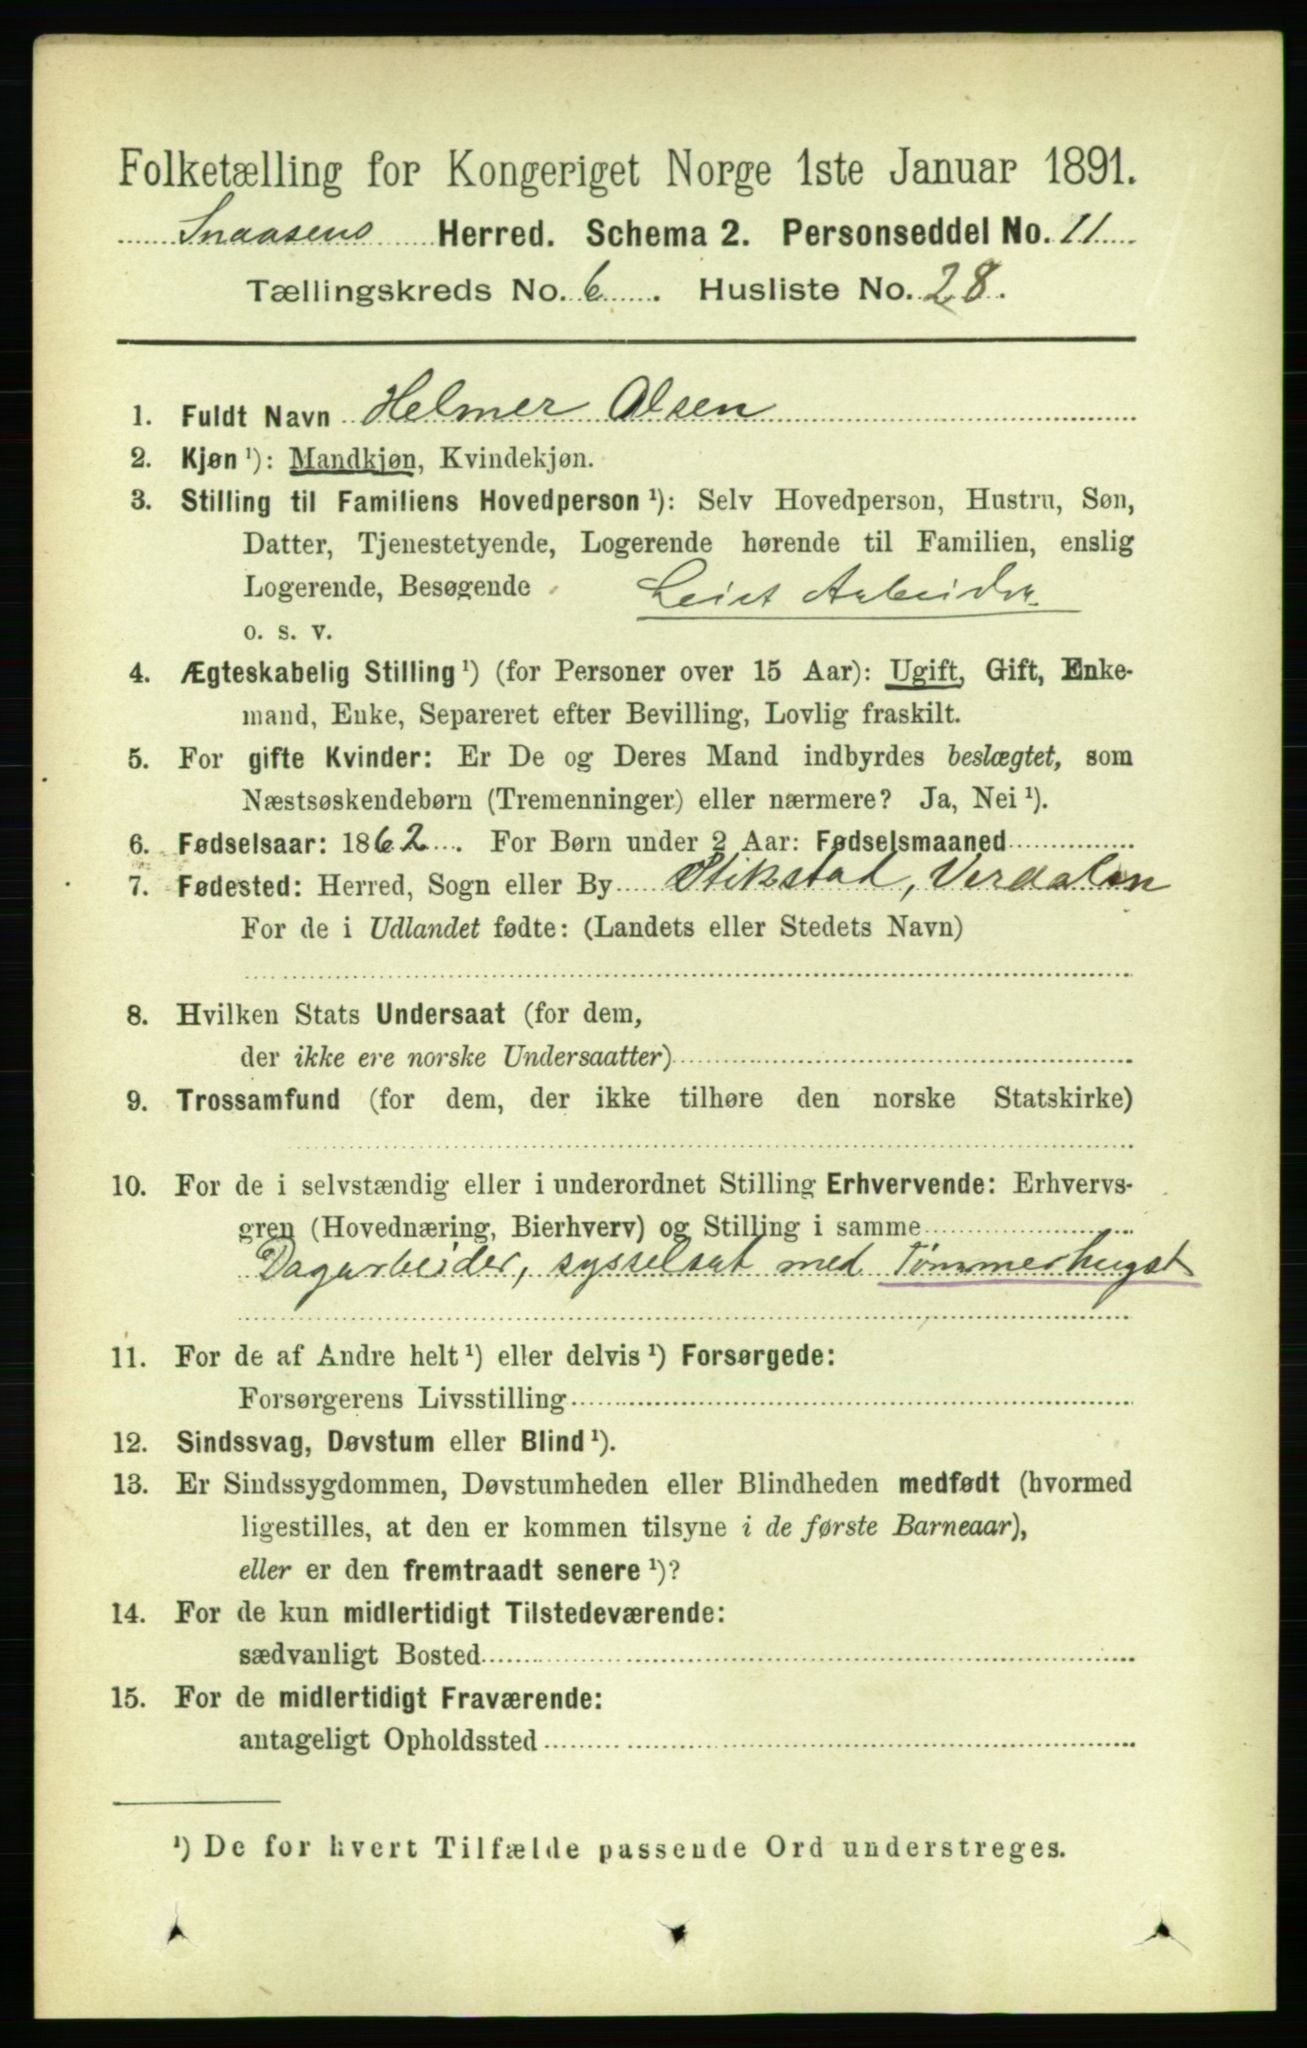 Folketælling for Kongeriget Norge 1ste Januar 1891.
Snaasens Herred. Schema 2. Personseddel No. 11
Tællingskreds No. 6. Husliste No. 28.
1. Fuldt Navn Helmer Olsen
2. Kjøn ¹): Mandkjøn, Kvindekjøn.
3. Stilling til Familiens Hovedperson ¹): Selv Hovedperson, Hustru, Søn,
Datter, Tjenestetyende, Logerende hørende til Familien, enslig
Logerende, Besøgende Leiet Arbeider
o. s. v.
4. Ægteskabelig Stilling ¹) (for Personer over 15 Aar): Ugift, Gift, Enke-
mand, Enke, Separeret efter Bevilling, Lovlig fraskilt.
5. For gifte Kvinder: Er De og Deres Mand indbyrdes beslægtet, som
Næstsøskendebørn (Tremenninger) eller nærmere? Ja, Nei ¹).
6. Fødselsaar: 1862. For Børn under 2 Aar: Fødselsmaaned
7. Fødested: Herred, Sogn eller By Stikstad, Verdalen
For de i Udlandet fødte: (Landets eller Stedets Navn)
8. Hvilken Stats Undersaat (for dem,
der ikke ere norske Undersaatter)
9. Trossamfund (for dem, der ikke tilhøre den norske Statskirke)
10. For de i selvstændig eller i underordnet Stilling Erhvervende: Erhvervs-
gren (Hovednæring, Bierhverv) og Stilling i samme
Dagarbeider, sysselsat med Tømmerhugst
11. For de af Andre helt ¹) eller delvis ¹) Forsørgede:
Forsørgerens Livsstilling
12. Sindssvag, Døvstum eller Blind ¹).
13. Er Sindssygdommen, Døvstumheden eller Blindheden medfødt (hvormed
ligestilles, at den er kommen tilsyne i de første Barneaar),
eller er den fremtraadt senere ¹)?
14. For de kun midlertidigt Tilstedeværende:
sædvanligt Bosted
15. For de midlertidigt Fraværende:
antageligt Opholdssted
¹) De for hvert Tilfælde passende Ord understreges.